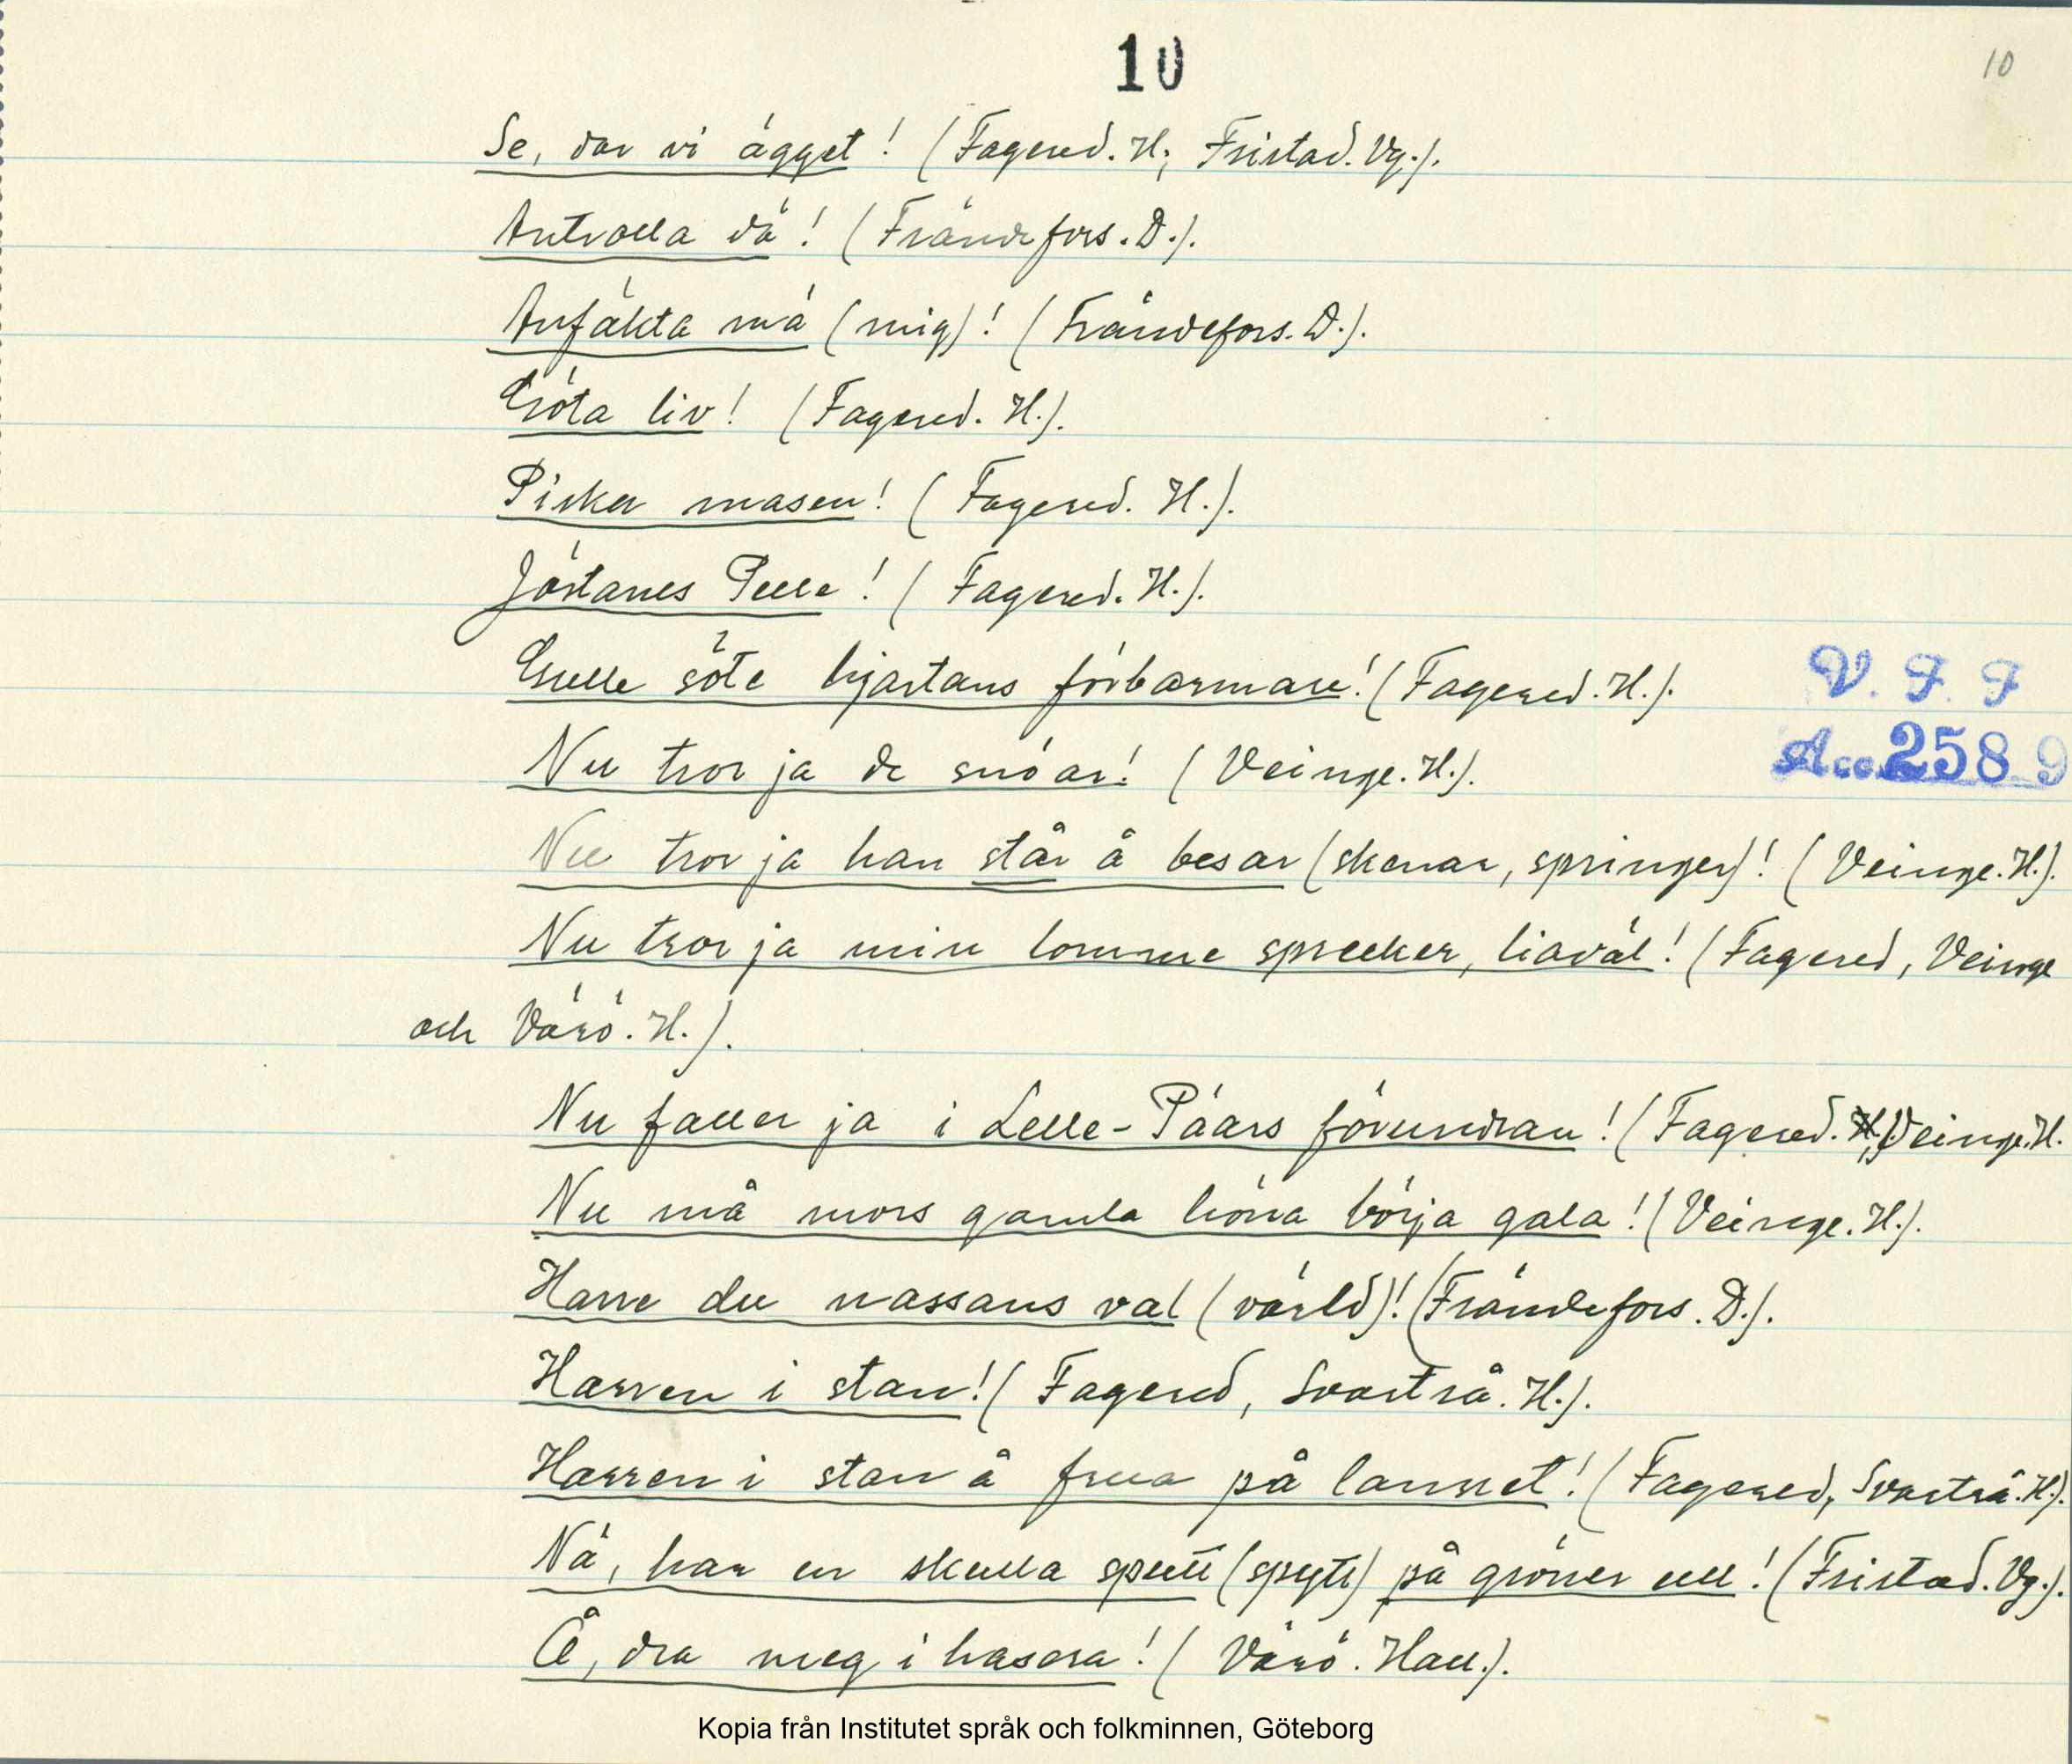 10
10
Se, dar vi ägget! (Fagered. H; Fristad. Vg.).
Antvolla dä! (Frändefors. D.).
Anfäkta mä (mig)! (Frändefors. D.).
Göta liv! (Fagered. H.).
Pisker masen! (Fagered. H.).
Jöstanes Pelle! (Fagered. H.).
Gulle söte hjartans förbarmare! (Fagered. H.).
V. F. F
Nu tror ja de snöar! (Veinge. H.).
Acc. 2589
Nu tror ja han står å besar (skenar, springer)! (Veinge. H.).
Nu tror ja min lomme sprecker, liaväl! (Fagered, Veinge
och Värö. H.).
Nu faller ja i Lelle-Päars förundran! (Fagered. Veinge. H.
Nu må mors gamla höna börja gala! (Veinge. H.).
Harre du nassans val (värld)! (Frändefors. D.).
Harren i stan! (Fagered, Svartrå. H.).
Harren i stan å frua på lannet! (Fagered, Svartrå. H.).
Nä, han en skulla sputt (spytt) på gröner ull! (Fristad. Vg.).
Å, dra meg i hasera! (Värö. Hall.).
Kopia från Institutet språk och folkminnen, Göteborg